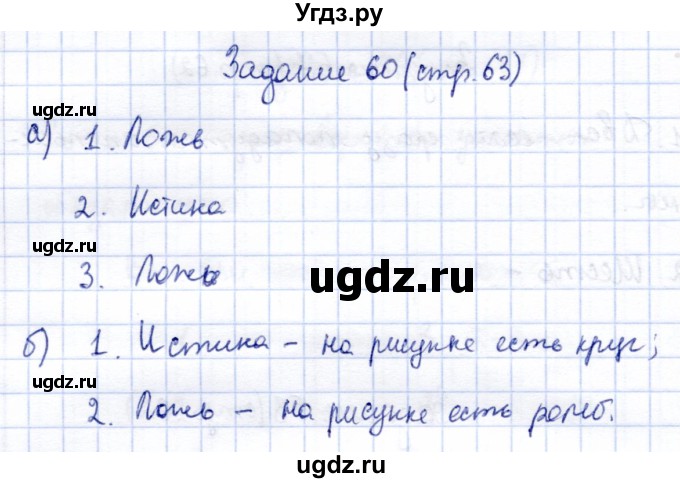 Угдз.ру
Задание 60 (стр. 63)
ugdz.ru
а) 1. Ложь
ugdz.ru
2. Истина
ugdz.ru
3. Ложь
ugdz.ru
ugdz.ru
б) 1. Истина – на рисунке есть круг;
ugdz.ru
2. Ложь – на рисунке есть ромб.
ugdz.ru
ugdz.ru